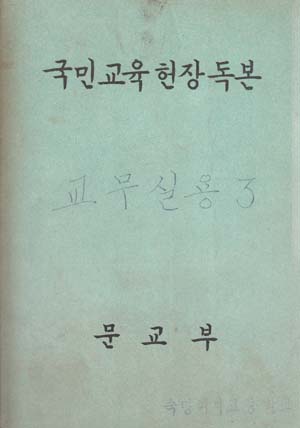 국민교육헌장독본
교무실용 3
문교부